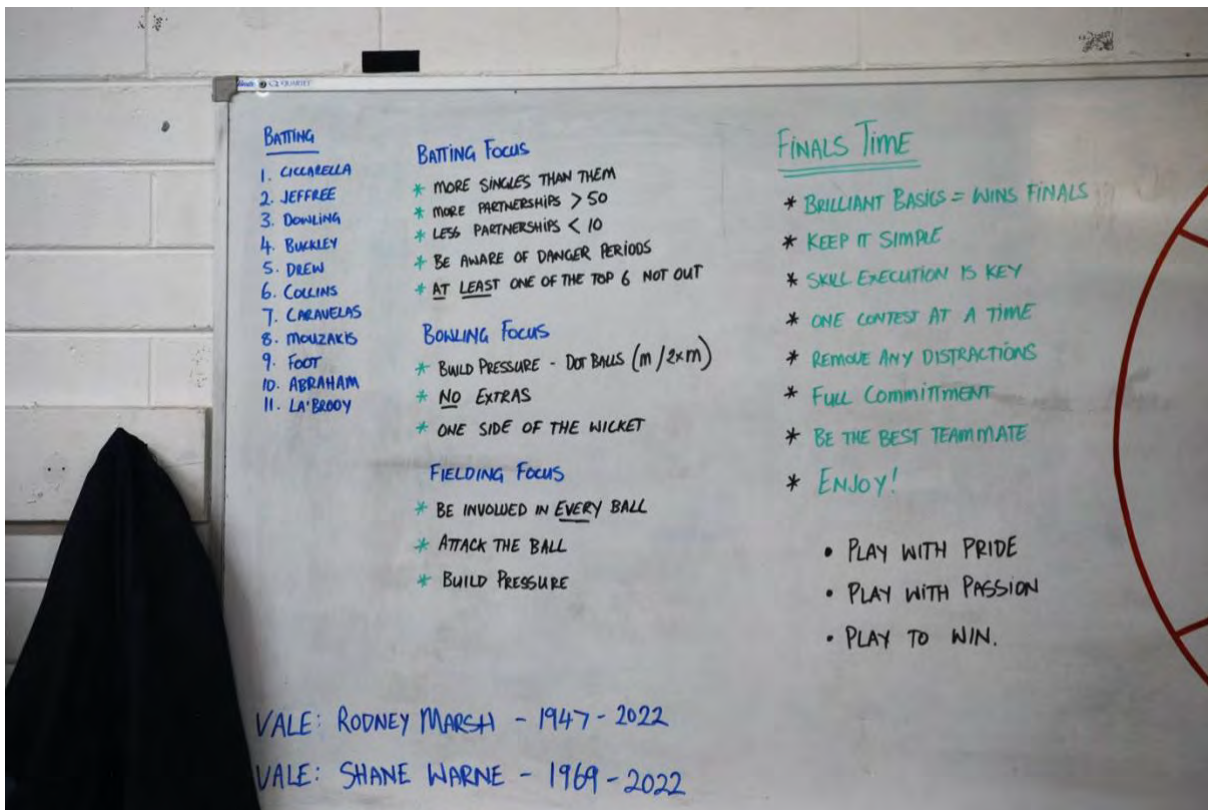 QUARTET
BATTING
1. CICCARELLA
2. JEFFREE
3. DOWLING
4. BUCKLEY
5. DREW
6. COLLINS
7. CARAVELAS
8. MOUZAKIS
9. FOOT
10. ABRAHAM
11. LA'BROOY
BATTING FOCUS
* MORE SINGLES THAN THEM
* MORE PARTNERSHIPS > 50
* LESS PARTNERSHIPS < 10
* BE AWARE OF DANGER PERIODS
* AT LEAST ONE OF THE TOP 6 NOT OUT
BOWLING FOCUS
* BUILD PRESSURE - DOT BALLS (M/2xM)
* NO EXTRAS
* ONE SIDE OF THE WICKET
FIELDING FOCUS
* BE INVOLVED IN EVERY BALL
* ATTACK THE BALL
* BUILD PRESSURE
FINALS TIME
* BRILLIANT BASICS = WINS FINALS
* KEEP IT SIMPLE
* SKILL EXECUTION IS KEY
* ONE CONTEST AT A TIME
* REMOVE ANY DISTRACTIONS
* FULL COMMITTMENT
* BE THE BEST TEAMMATE
* ENJOY!
• PLAY WITH PRIDE
• PLAY WITH PASSION
• PLAY TO WIN.
VALE: RODNEY MARSH - 1947 - 2022
VALE: SHANE WARNE - 1969 - 2022